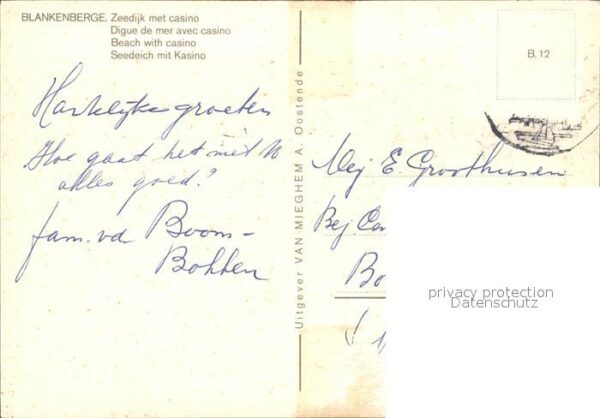 BLANKENBERGE. Zeedijk met casino
Digue de mer avec casino
Beach with casino
Seedeich mit Kasino
Hartelijke groeten
Hoe gaat het met U
alles goed?
fam. vd Boom-
Bohten
Uitgever VAN MIEGHEM A. Oostende
B. 12
Mej E. Groothusen
Bej. Ce
Bo
privacy protection
Datenschutz